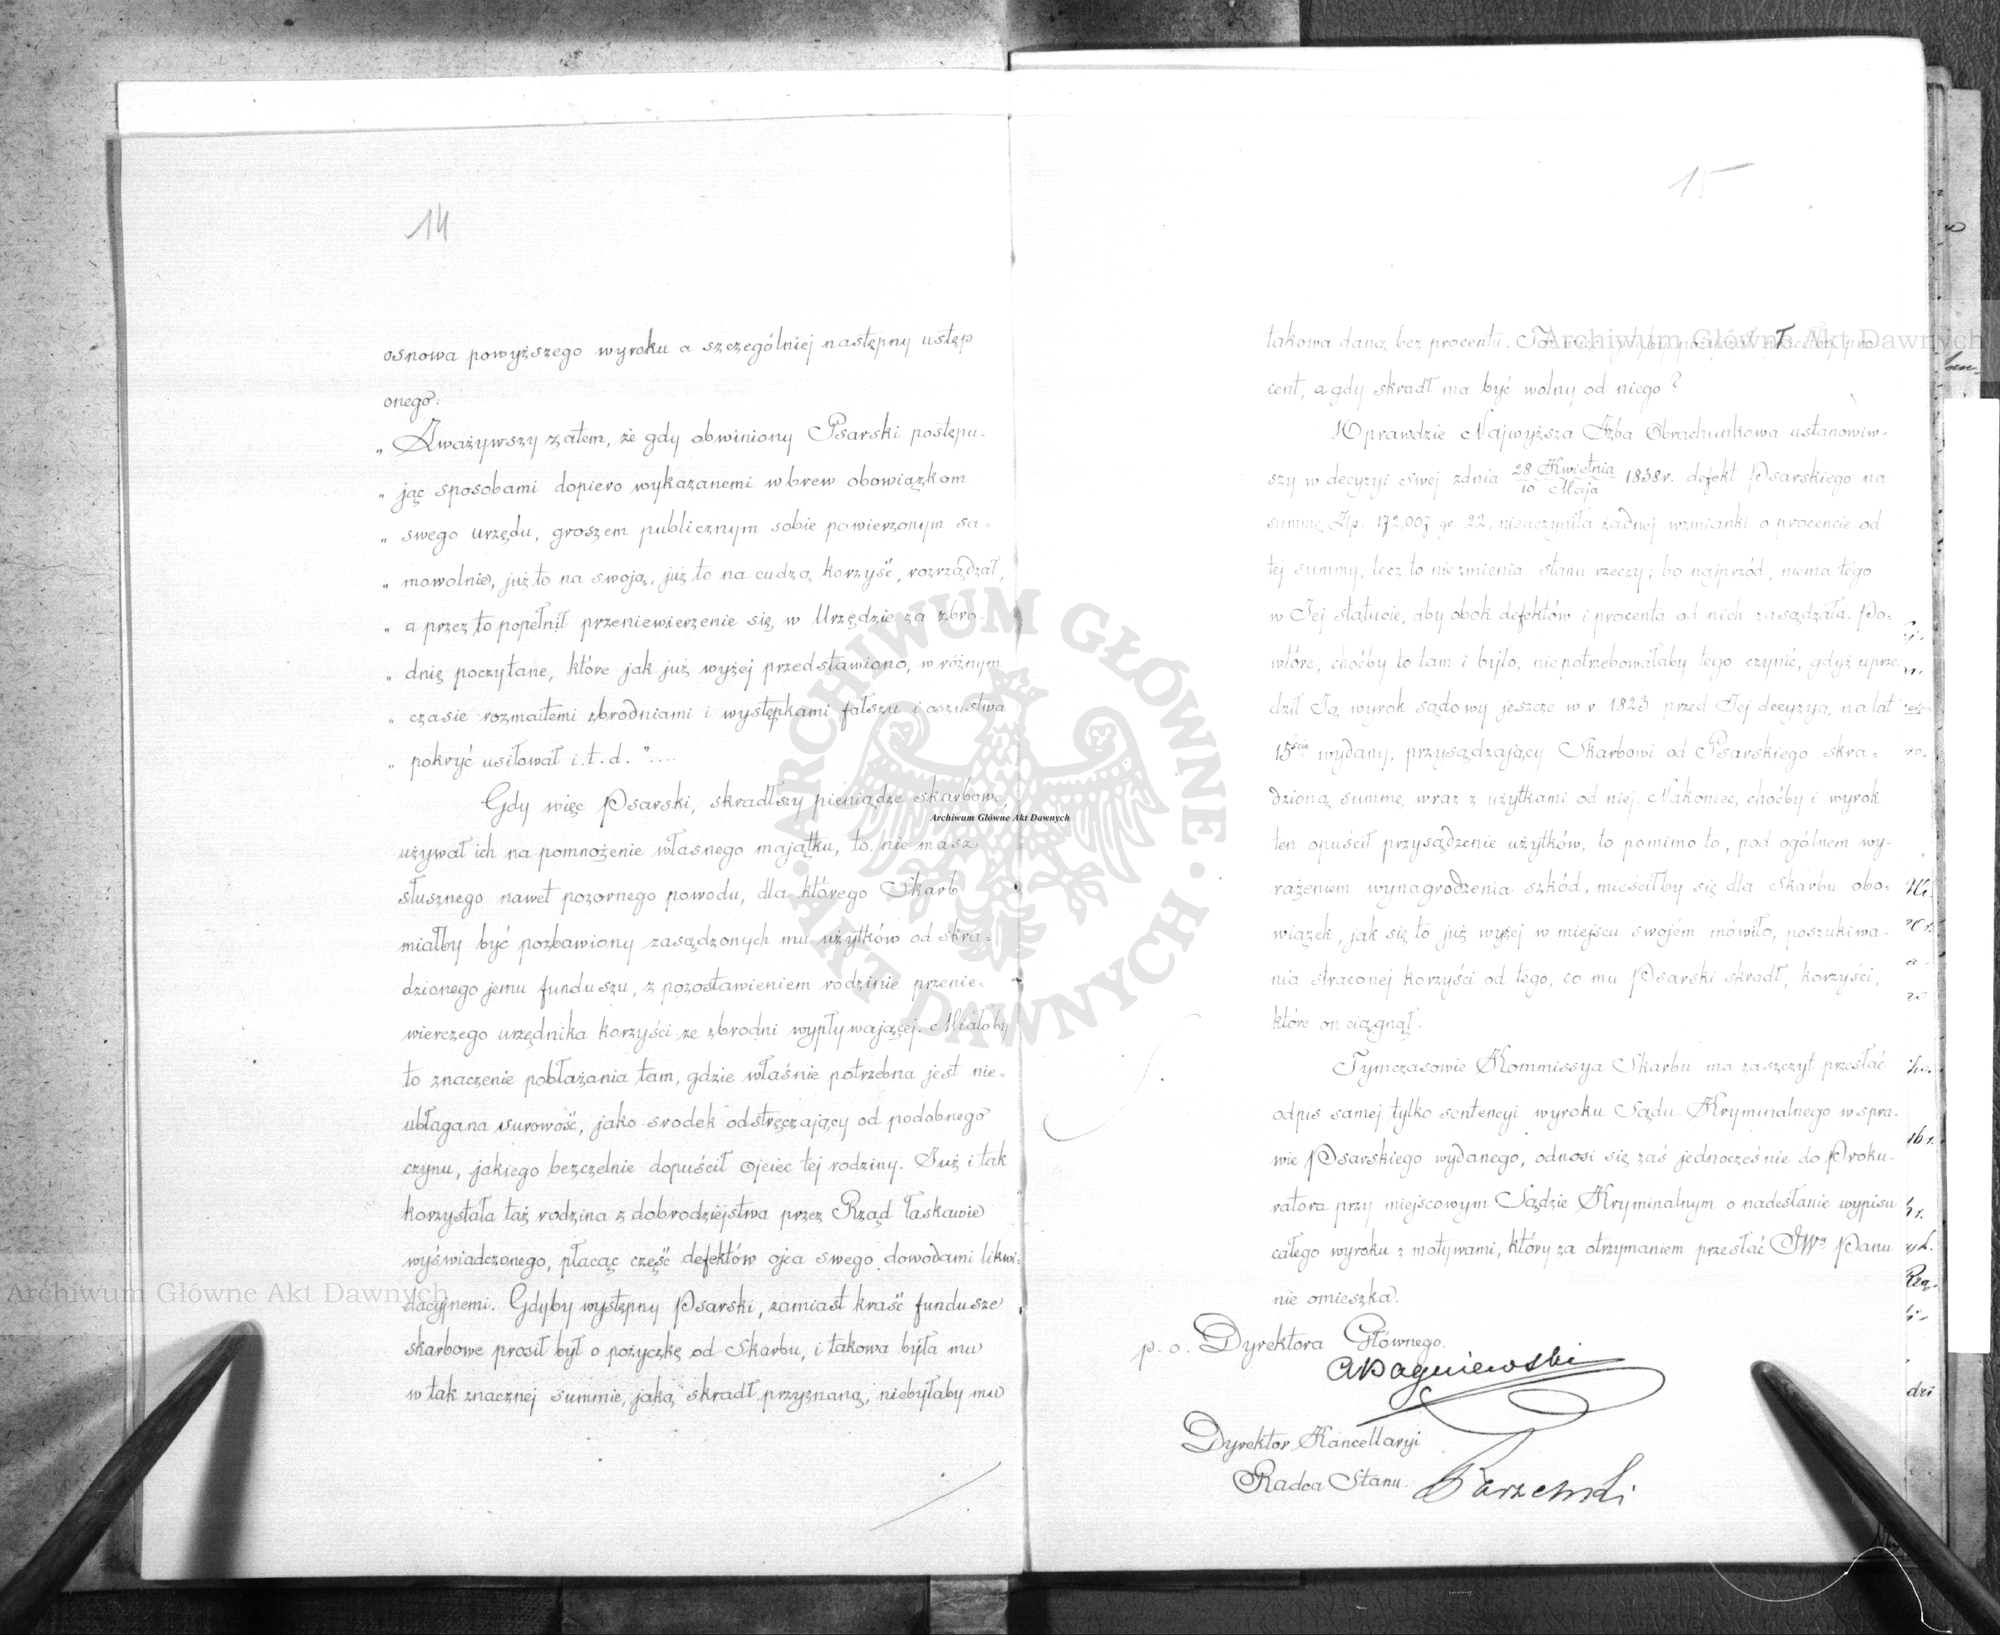 14
osnowa powyższego wyroku a szczególniej następny ustęp
onego:
„ Zważywszy zatem, że gdy obwiniony Psarski postępu-
„ jąc sposobami dopiero wykazanemi wbrew obowiązkom
„ swego urzędu, groszem publicznym sobie powierzonym sa-
„ mowolnie, już to na swoją, już to na cudzą korzyść, rozrządzał,
„ a przez to popełnił przeniewierzenie się w Urzędzie za zbro-
„ dnię poczytane, które jak już wyżej przedstawiono, w różnym
„ czasie rozmaitemi zbrodniami i występkami fałszu i oszustwa
„ pokryć usiłował i.t.d."....
Gdy więc Psarski, skradłszy pieniądze skarbowe,
używał ich na pomnożenie własnego majątku, to nie masz
słusznego nawet pozornego powodu, dla którego Skarb
miałby być pozbawiony zasądzonych mu użytków od skra-
dzionego jemu funduszu, z pozostawieniem rodzinie przenie-
wierczego urzędnika korzyści ze zbrodni wypływającej. Miałoby
to znaczenie pobłażania tam, gdzie właśnie potrzebna jest nie-
ubłagana surowość, jako srodek odstręczający od podobnego
czynu, jakiego bezczelnie dopuścił ojciec tej rodziny. Już i tak
korzystała taż rodzina z dobrodziejstwa przez Rząd łaskawie
wyświadczonego, płacąc część defektów ojca swego dowodami likwi-
dacyjnemi. Gdyby występny Psarski, zamiast kraść fundusze
skarbowe prosił był o pożyczkę od Skarbu, i takowa była mu
w tak znacznej summie, jaką skradł przyznaną, niebyłaby mu
15
takowa daną bez procentu.
cent, a gdy skradł ma być wolny od niego?
Wprawdzie Najwyższa Izba Obrachunkowa ustanowiw-
szy w decyzyi swej zdnia 28 Kwietnia/10 Maja 1838 r. defekt Psarskiego na
summę Zł. 172,007 gr. 22, nieuczyniła żadnej wzmianki o procencie od
tej summy, lecz to niezmienia stanu rzeczy; bo najprzód, niema tego
w Jej statucie, aby obok defektów i procenta od nich zasądzała. Po-
wtóre, choćby to tam i było, niepotrzebowałaby tego czynić, gdyż uprze-
dził Ją wyrok sądowy jeszcze w r. 1823 przed Jej decyzyą, na lat
15ście wydany, przysądzający Skarbowi od Psarskiego skra-
dzioną summę, wraz z użytkami od niej. Nakoniec, choćby i wyrok
ten opuścił przysądzenie użytków, to pomimo to, pod ogólnem wy-
rażeniem wynagrodzenia szkód, mieściłby się dla Skarbu obo-
wiązek, jak się to już wyżej w miejscu swojém mówiło, poszukiwa-
nia straconej korzyści od tego, co mu Psarski skradł, korzyści,
które on ciągnął.
Tymczasowie Kommissya Skarbu ma zaszczyt przesłać
odpis samej tylko sentencyi wyroku Sądu Kryminalnego w spra-
wie Psarskiego wydanego, odnosi się zaś jednocześnie do Proku-
ratora przy miejscowym Sądzie Kryminalnym o nadesłanie wypisu
całego wyroku z motywami, który za otrzymaniem przesłać JWu Panu
nie omieszka.
p. o. Dyrektora Głównego.
Dyrektor Kancellaryi
Radca Stanu.
Archiwum Główne Akt Dawnych
Archiwum Główne Akt Dawnych
Archiwum Główne Akt Dawnych
ARCHIWUM GŁÓWNE · AKT DAWNYCH ·